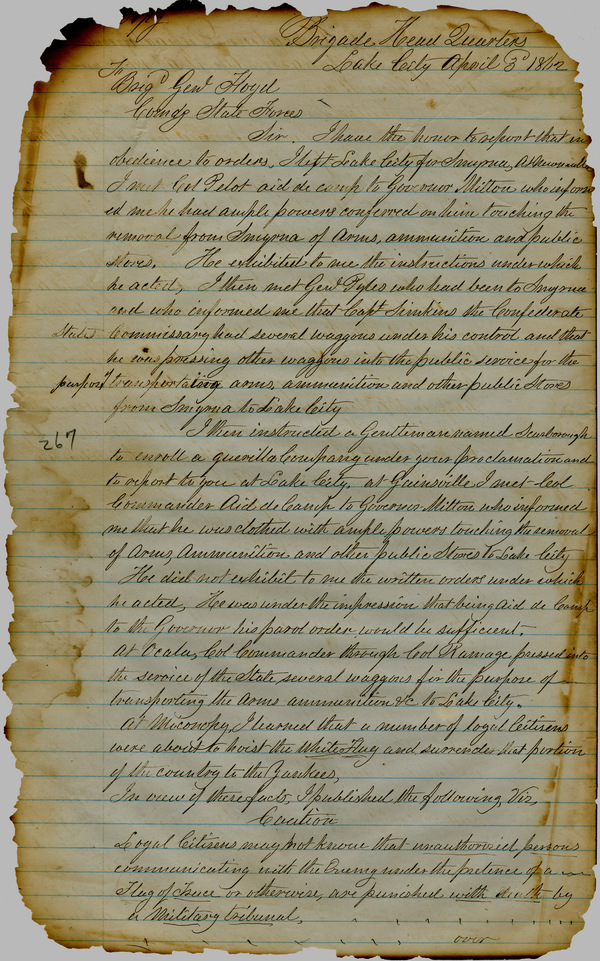 Copy
Brigade Head Quarters
Lake City April 3d 1862
To
Brigd Genl Floyd
Comdg State Forces
Sir. I have the honor to report that in
obedience to orders, I left Lake City for Smyrna, At Newnansville
I met Col Pelot aid de camp to Governor Milton who inform
ed me he had ample powers conferred on him touching the
removal from Smyrna of Arms, ammunition and public
stores. He exhibited to me the instructions under which
he acted, I then met Genl Dyles who had been to Smyrna
and who informed me that Capt Simkins the Confederate
States Commissary had several waggons under his control and that
he was pressing other waggons into the public service for the
purpose of transportating arms, ammunition and other public Stores
from Smyrna to Lake City
267
I then instructed a Gentleman named Scarborough
to enroll a guerilla Company under your proclamation and
to report to you at Lake City, at Gainsville I met Col
Commander Aid de Camp to Governor Milton who informed
me that he was clothed with ample powers touching the removal
of Arms, Ammunition and other public Stores to Lake City
He did not exhibit to me the written orders under which
he acted, He was under the impression that being Aid de Camp
to the Governor his parol order would be sufficient.
At Ocala, Col Commander through Col Ramage pressed into
the service of the State several waggons for the purpose of
transporting the Arms ammunition &c to Lake City.
At Miconopy, I learned that a number of loyal Citizens
were about to hoist the White Flag and surrender that portion
of the country to the Yankees,
In view of these facts, I published the following, Viz
Caution
Loyal Citizens may not know that unauthorized persons
communicating with the Enemy under the pretence of a
Flag of Truce or otherwise, are punished with death by
a Military tribunal,
over